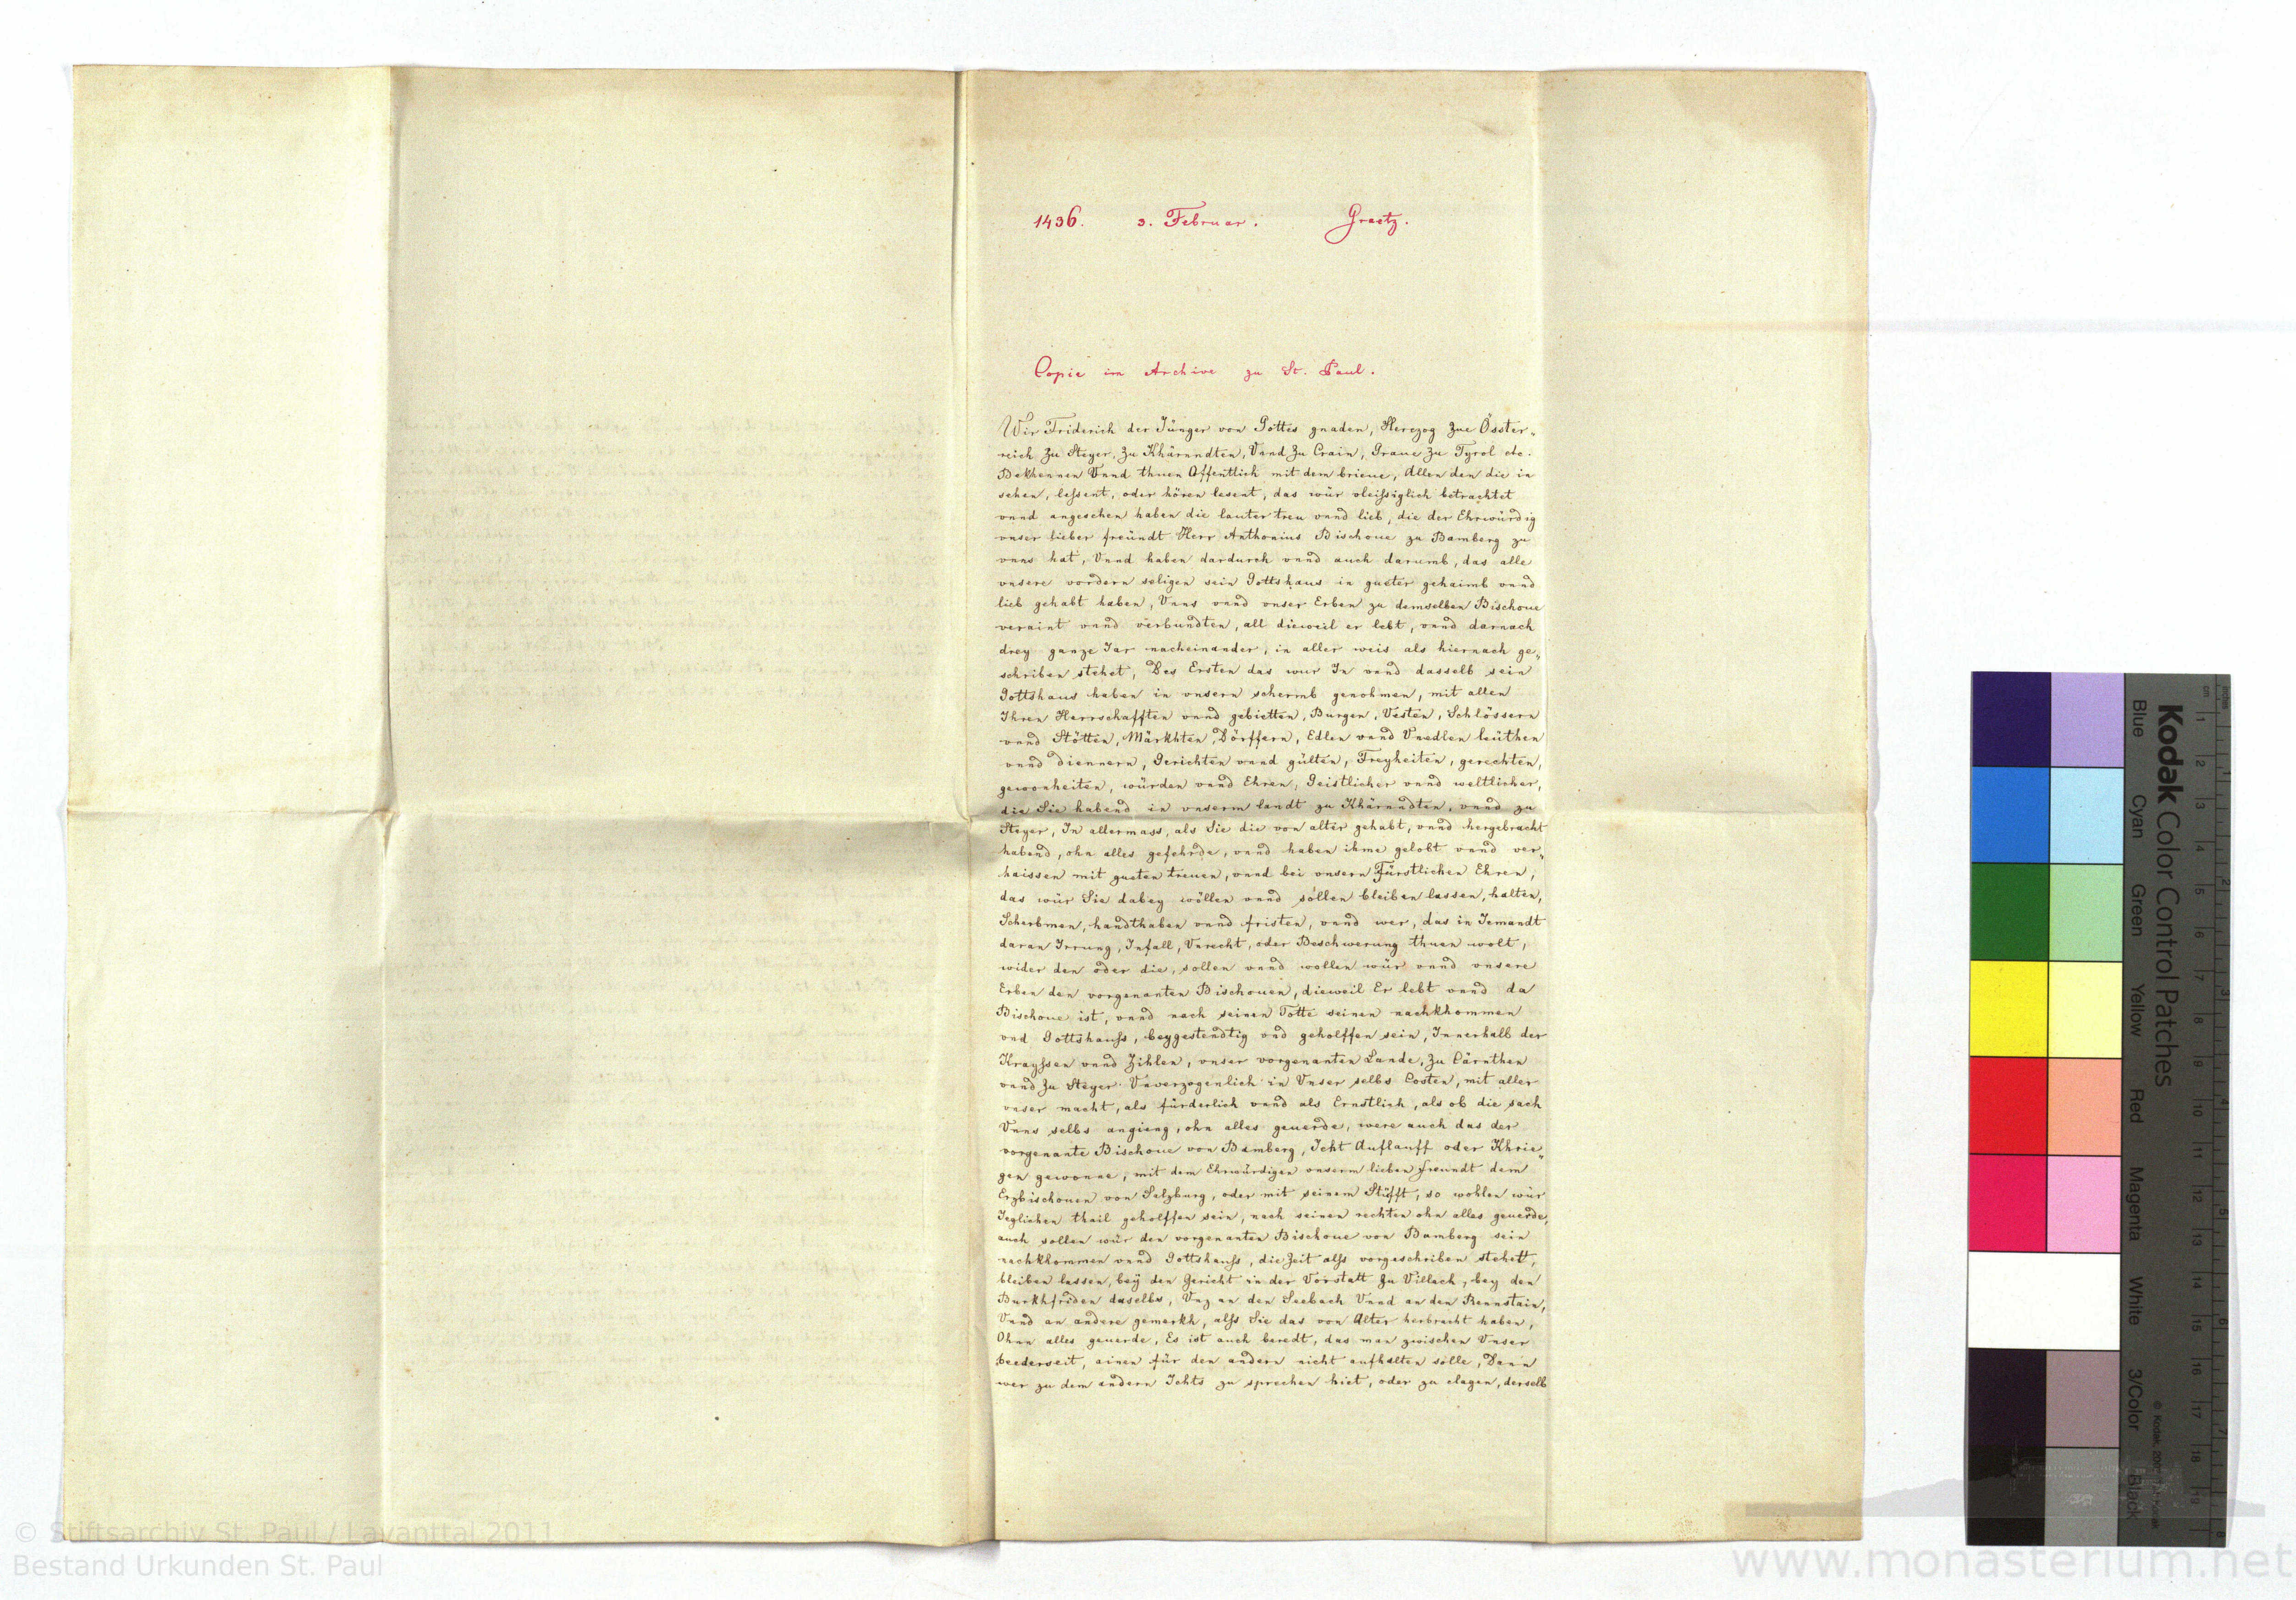 1436. 3. Februar. Graetz.
Copie im Archive zu St. Paul.
Wir Friderich der Jünger von Gottes gnaden, Herczog Zue Össter„
reich Zu Steyer, Zu Khärnndten, Vnnd Zu Crain, Graue Zu Tyrol etc.
Bekhennen Vnnd thuen Offentlich mit dem brieue, Allen den die in
sehen, lessent, oder hören lesent, das wür vleissiglich betrachtet
vnnd angesehen haben die lauter treu vnnd lieb, die der Ehrwürdig
vnser lieber freündt Herr Anthonius Bischoue zu Bamberg zu
vnns hat, Vnnd haben dardurch vnnd auch darumb, das alle
vnsere vordern seligen sein Gottshaus in gueter gehaimb vnnd
lieb gehabt haben, Vnns vnnd vnser Erben zu demselben Bischoue
veraint vnnd verbundten, all dieweil er lebt, vnnd darnach
drey ganze Jar nacheinander, in aller weis als hiernach ge„
schriben stehet, Des Ersten das wur In vnnd dasselb sein
Gottshaus haben in vnsern schermb genohmen, mit allen
Ihren Herrschafften vnnd gebietten, Burgen, Vesten, Schlössern
vnnd Stötten, Märkhten, Dörffern, Edlen vnnd Vnedlen leüthen
vnnd Diennern, Gerichten vnnd gülten, Freyheiten, gerechten,
gewonheiten, würden vnnd Ehren, Geistlicher vnnd weltlicher,
die Sie habend in vnserm landt zu Khärnndten, vnnd zu
Steyer, In allermass, als Sie die von alter gehabt, vnnd hergebracht
habend, ohn alles gefehrde, vnnd haben ihme gelobt vnnd ver„
haissen mit gueten treuen, vnnd bei vnsern Fürstlichen Ehren,
das wür Sie dabey wöllen vnnd söllen bleiben lassen, halten,
Scherbmen, handthaben vnnd fristen, vnnd wer, das in Jemandt
daran Irrung, Infall, Vnrecht, oder Beschwerung thuen wolt,
wider den oder die, sollen vnnd wollen wür vnnd vnsere
Erben den vorgenanten Bischouen, dieweil Er lebt vnnd da
Bischoue ist, vnnd nach seinen Totte seinen nachkhommen
vnd Gottshauss, beygestendtig vnd geholffen sein, Innerhalb der
Krayssen vnnd Zihlen, vnser vorgenanten Lande, Zu Cärnthen
vnnd Zu Steyer. Vnverzogenlich in Vnser selbs Costen, mit aller
vnser macht, als fürderlich vnnd als Ernstlich, als ob die sach
Vnns selbs angieng, ohn alles geuerde, were auch das der
vorgenante Bischoue von Bamberg, Icht Auflauff oder Khrie„
gen gewonne, mit dem Ehrwürdigen vnserm lieben freundt dem
Erzbischouen von Salzburg, oder mit seinem Stüfft, so wohlen wür
Jeglichen thail geholffen sein, nach seinen rechten ohn alles geuerde,
auch sollen wür den vorgenanten Bischoue von Bamberg sein
nachkhommen vnnd Gottshauss, die Zeit alss vorgeschriben stehett,
bleiben lassen, bey den Gericht in der Vorstatt Zu Villach, bey den
Burkhfriden daselbs, Vnz an den Seebach Vnnd an den Rennstain,
Vnnd an andere gemerkh, alss Sie das von Alter herbracht haben,
Ohnn alles geuerde, Es ist auch beredt, das man zwischen Vnser
beederseit, ainen für den andern nicht aufhalten sölle, Dann
wer zu dem andern Ichts zu sprechen hiet, oder zu clagen, derselb
Kodak Color Control Patches
Blue Cyan Green Yellow Red Magenta White 3/Color Black
© Stiftsarchiv St. Paul / Lavanttal 2011
Bestand Urkunden St. Paul
www.monasterium.net